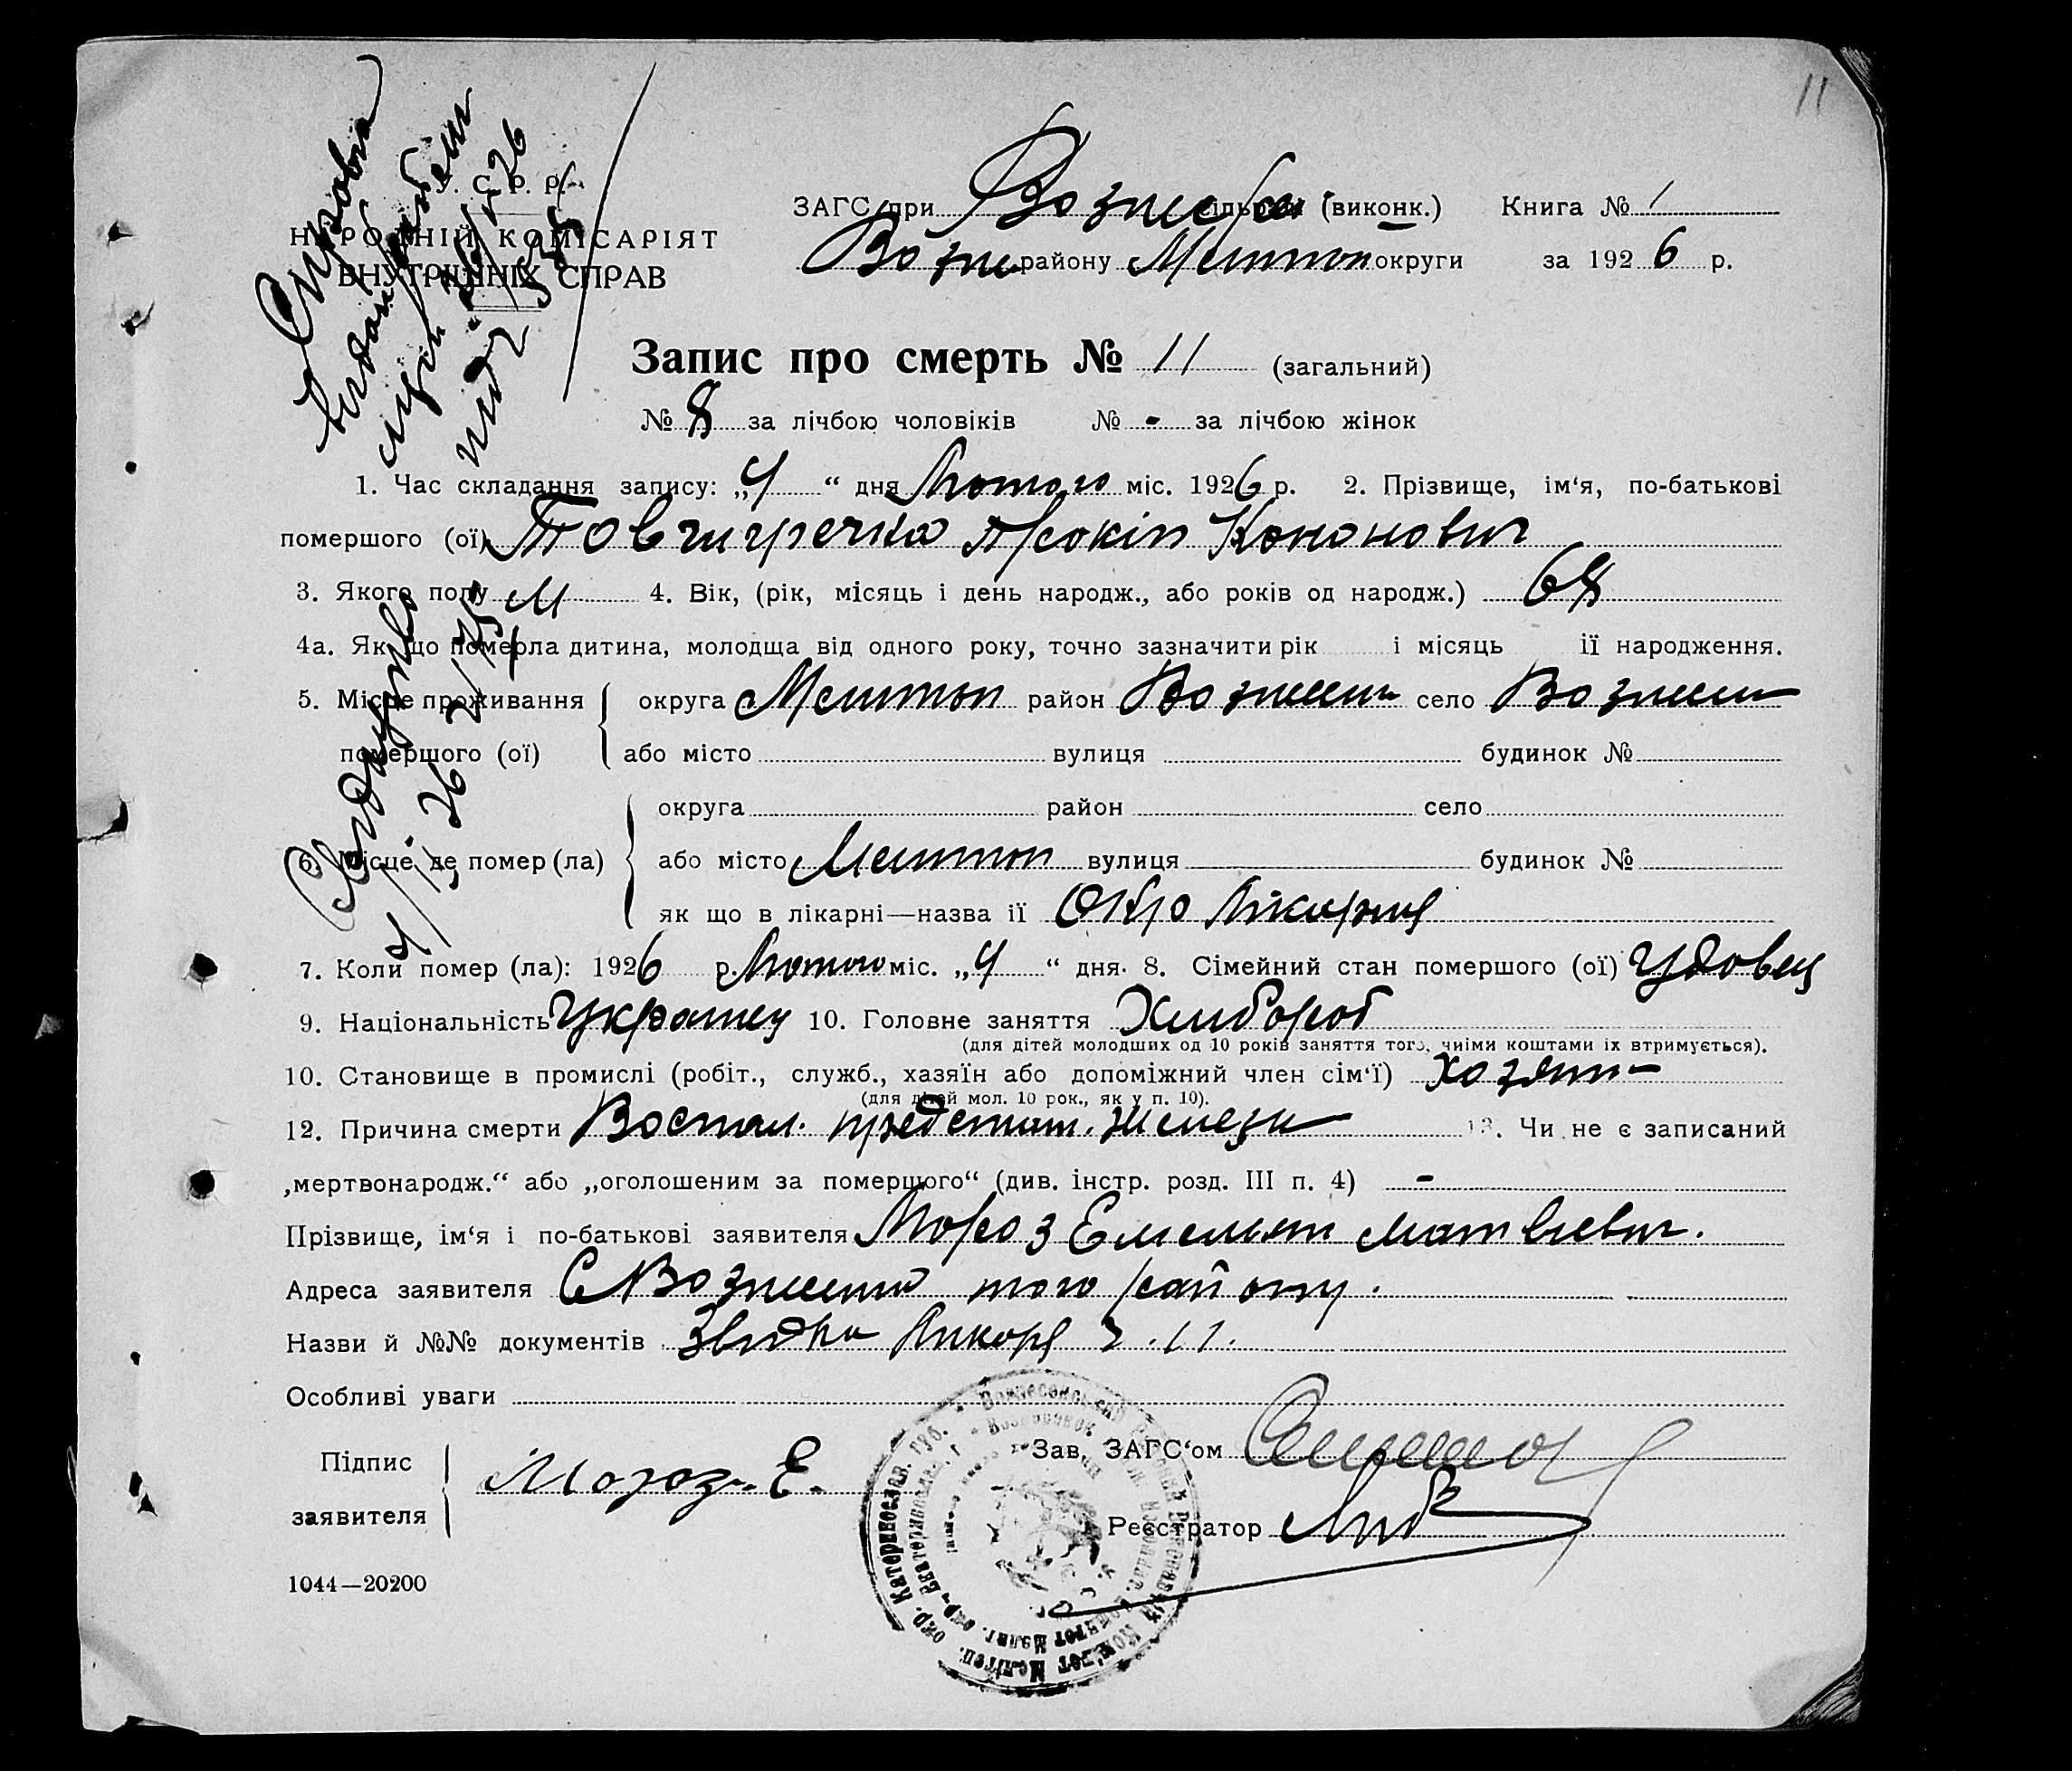 11
У. С. Р. Р.
НАРОДНІЙ КОМІСАРІЯТ
ВНУТРІШНІХ СПРАВ
ЗАГС при Вознес сільраді (виконк.) Книга № 1
Возне району Мелитоп округи за 1926 р.
Запис про смерть № 11 (загальний)
№ 8 за лічбою чоловіків № - за лічбою жінок
1. Час складання запису: „4“ дня Лютого міс. 1926 р. 2. Прізвище, ім‘я, по-батькові
помершого (ої) Товчигречка Прокіп Кононович
3. Якого полу М 4. Вік, (рік, місяць і день народж., або років од народж.) 68
4а. Як що померла дитина, молодша від одного року, точно зазначити рік і місяць її народження.
5. Місце проживання помершого (ої) округа Мелитоп район Вознесен село Вознесен
або місто вулиця будинок №
6. Місце де помер (ла) округа район село
або місто Мелитоп вулиця будинок №
як що в лікарні—назва її Окр Лікарня
7. Коли помер (ла): 1926 р. Лютого міс. „4“ дня. 8. Сімейний стан помершого (ої) Удовец
9. Національність Украинец 10. Головне заняття Хлибороб
(для дітей молодших од 10 років заняття того, чиїми коштами їх втримується).
10. Становище в промислі (робіт., служб., хазяїн або допоміжний член сім‘ї) Хозяин
(для дітей мол. 10 рок., як у п. 10).
12. Причина смерти Воспал. предстат. железы 13. Чи не є записаний
„мертвонародж.“ або „оголошеним за помершого“ (див. інстр. розд. III п. 4) -
Прізвище, ім‘я і по-батькові заявителя Мороз Емельян Матвиевич.
Адреса заявителя С Вознесенка того району.
Назви й №№ документів Звидка Ликаря
Особливі уваги
Підпис заявителя Мороз. Е.
Зав. ЗАГС‘ом
Реєстратор
1044—20200
Свидоцтво